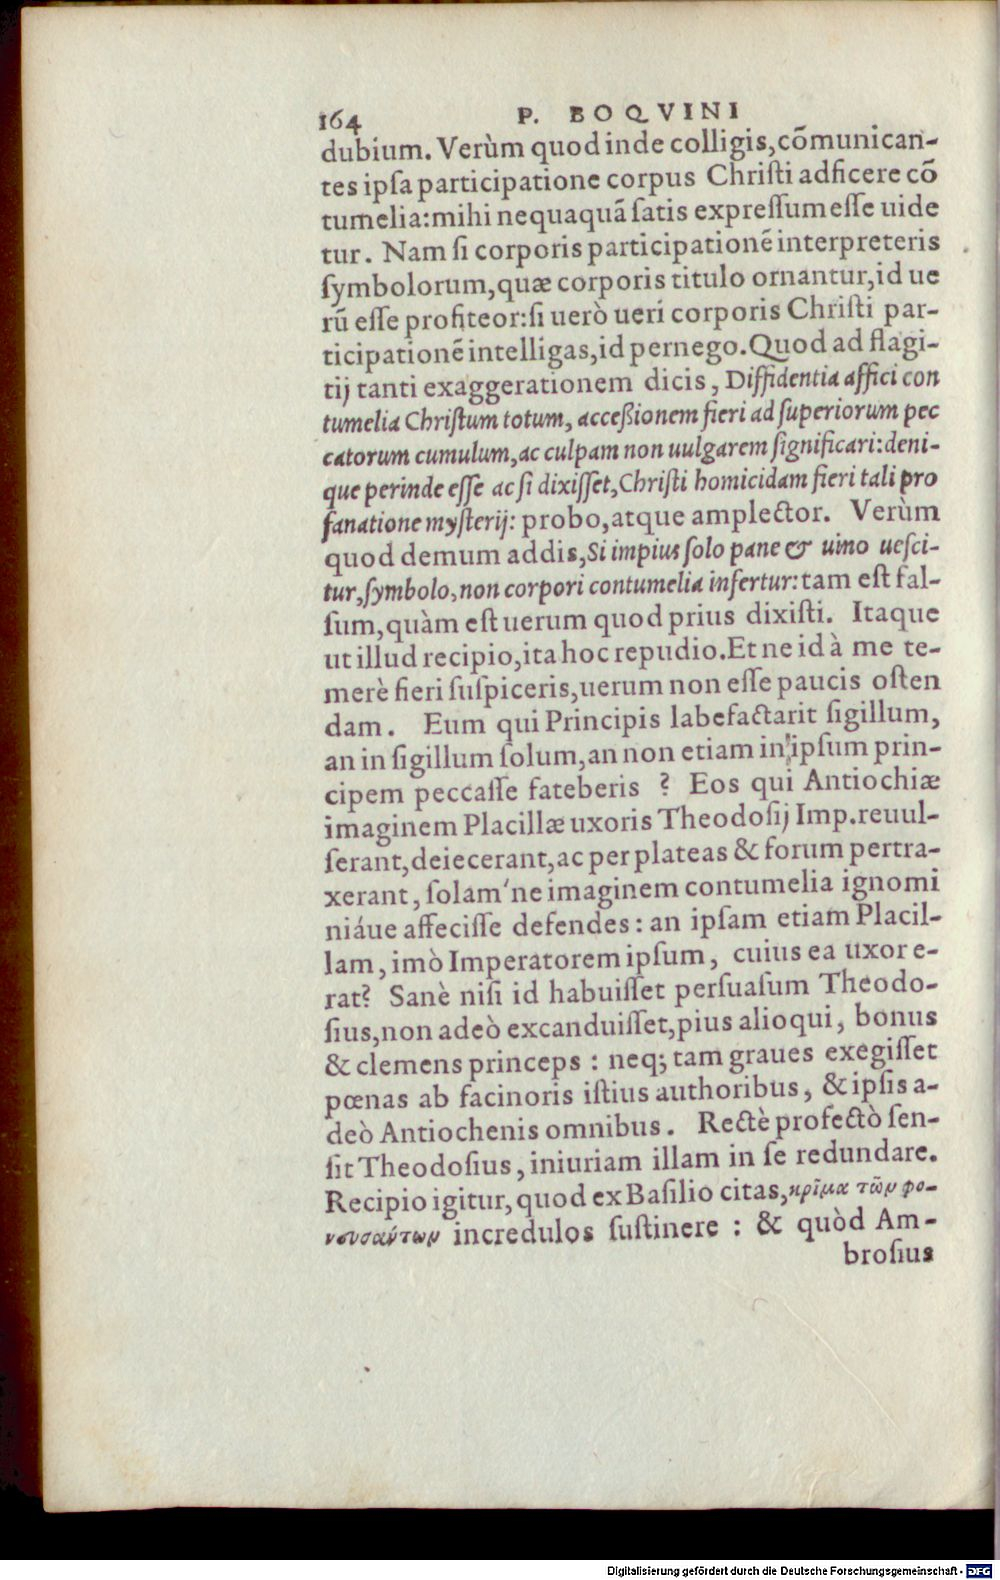 164 P. BOQVINI
dubium. Verùm quod inde colligis, cōmunican-
tes ipſa participatione corpus Chriſti adficere cō
tumelia: mihi nequaquā ſatis expreſſum eſſe uide
tur. Nam ſi corporis participationē interpreteris
ſymbolorum, quæ corporis titulo ornantur, id ue
rū eſſe profiteor: ſi uerò ueri corporis Chriſti par-
ticipationē intelligas, id pernego. Quod ad flagi-
tij tanti exaggerationem dicis, Diffidentia affici con
tumelia Chriſtum totum, acceßionem fieri ad ſuperiorum pec
catorum cumulum, ac culpam non uulgarem ſignificari: deni-
que perinde eſſe ac ſi dixiſſet, Chriſti homicidam fieri tali pro
fanatione myſterij: probo, atque amplector. Verùm
quod demum addis, Si impius ſolo pane & uino ueſci-
tur, ſymbolo, non corpori contumelia infertur: tam eſt fal-
ſum, quàm eſt uerum quod prius dixiſti. Itaque
ut illud recipio, ita hoc repudio. Et ne id à me te-
merè fieri ſuſpiceris, uerum non eſſe paucis oſten
dam. Eum qui Principis labefactarit ſigillum,
an in ſigillum ſolum, an non etiam in ipſum prin-
cipem peccaſſe fateberis ? Eos qui Antiochiæ
imaginem Placillæ uxoris Theodoſij Imp. reuul-
ſerant, deiecerant, ac per plateas & forum pertra-
xerant, ſolam'ne imaginem contumelia ignomi
niáue affeciſſe defendes: an ipſam etiam Placil-
lam, imò Imperatorem ipſum, cuius ea uxor e-
rat? Sanè niſi id habuiſſet perſuaſum Theodo-
ſius, non adeò excanduiſſet, pius alioqui, bonus
& clemens princeps : neq; tam graues exegiſſet
pœnas ab facinoris iſtius authoribus, & ipſis a-
deò Antiochenis omnibus. Rectè profectò ſen-
ſit Theodoſius, iniuriam illam in ſe redundare.
Recipio igitur, quod ex Baſilio citas, κρῖμα τῶν φο-
νευσάντων incredulos ſuſtinere : & quòd Am-
broſius
Digitalisierung gefördert durch die Deutsche Forschungsgemeinschaft - DFG